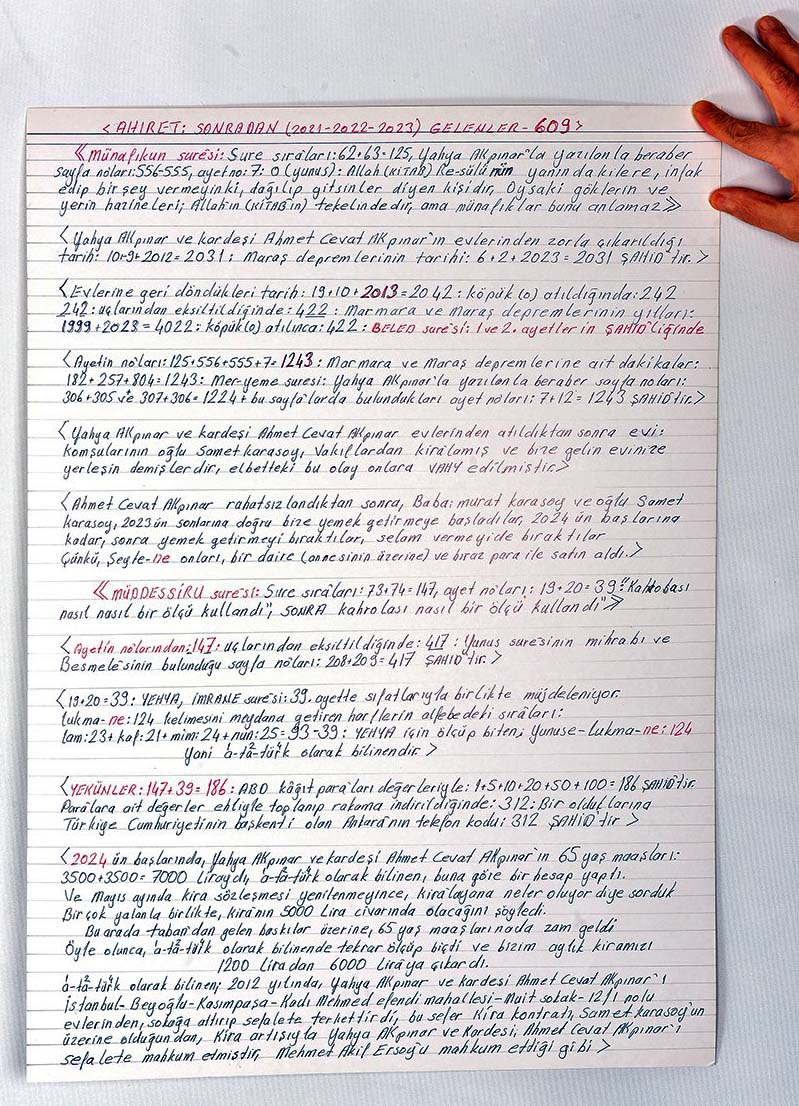 < AHİRET: SONRADAN (2021-2022-2023) GELENLER - 609 >
《 Münafikun suresi: Sure sıraları: 62+63=125, Yahya AKpınar'la yazılonla beraber
sayfa noları: 556-555, ayet no: 7: O (yunus): Allah (KİTAB) Re-sülü'nün yanındakilere, infak
edip bir şey vermeyinki, dağılıp gitsinler diyen kişidir, Oysaki göklerin ve
yerin hazineleri; Allah'ın (KİTAB'ın) tekelindedir, ama münafıklar bunu anlamaz 》
< Yahya AKpınar ve kardeşi Ahmet Cevat AKpınar'ın evlerinden zorla çıkarıldığı
tarih: 10+9+2012=2031: Maraş depremlerinin tarihi: 6+2+2023=2031 ŞAHİD'tir. >
< Evlerine geri döndükleri tarih: 19+10+2013=2042: köpük (o) atıldığında: 242
242: uçlarından eksiltildiğinde: 422: Marmara ve Maraş depremlerinin yılları:
1999+2023=4022: köpük (o) atılınca: 422: BELED suresi: 1 ve 2. ayetlerin ŞAHİD'liğinde
< Ayetin noları: 125+556+555+7=1243: Marmara ve Maraş depremlerine ait dakikalar:
182+257+804=1243: Mer-yeme suresi: Yahya AKpınar'la yazılonla beraber sayfa noları:
306+305 ve 307+306=1224+bu sayfa'larda bulundukları ayet noları: 7+12=1243 ŞAHİD'tir. >
< Yahya AKpınar ve kardeşi Ahmet Cevat AKpınar evlerinden atıldıktan sonra evi:
Komşularının oğlu Samet karasoy, Vakıflardan kiralamış ve bize gelin evinize
yerleşin demişlerdir, elbetteki bu olay onlara VAHY edilmiştir >
< Ahmet Cevat AKpınar rahatsızlandıktan sonra, Baba: murat karasoy ve oğlu Samet
karasoy, 2023ün sonlarına doğru bize yemek getirmeye başladılar, 2024 ün başlarına
kadar, sonra yemek getirmeyi bıraktılar, selam vermeyide bıraktılar
Çünkü, Şeyte-ne onları, bir daire (annesinin üzerine) ve biraz para ile satın aldı. >
《 MÜDDESSİRU suresi: Sure sıraları: 73+74=147, ayet noları: 19+20=39: "Kahrolası
nasıl nasıl bir ölçü kullandı", SONRA kahrolası nasıl bir ölçü kullandı" 》
< Ayetin nolarından: 147: uçlarından eksiltildiğinde: 417: Yunus suresinin mihrabı ve
Besmele'sinin bulunduğu sayfa noları: 208+209=417 ŞAHİD'tir. >
< 19+20=39: YEHYA, İMRANE suresi: 39. ayette sıfatlarıyla birlikte müjdeleniyor.
Lukma-ne: 124 kelimesini meydana getiren harflerin alfebedeki sıraları:
lam: 23+kaf: 21+mim: 24+nun: 25=93-39: YEHYA için ölçüp biten, Yunuse-lukma-ne: 124
Yani a-ta-türk olarak bilinendir. >
< YEKÜNLER: 147+39=186: ABD kâğıt paraları değerleriyle: 1+5+10+20+50+100=186 ŞAHİD'tir.
Paralara ait değerler ekliyle toplanıp rakama indirildiğinde: 312: Bir olduklarına
Türkiye Cumhuriyetinin başkenti olan Ankara'nın telefon kodu: 312 ŞAHİD'tir >
< 2024 ün başlarında, Yahya AKpınar ve kardeşi Ahmet Cevat AKpınar'ın 65 yaş maaşları:
3500+3500=7000 Liraydı, a-ta-türk olarak bilinen, buna göre bir hesap yaptı.
Ve Mayıs ayında kira sözleşmesi yenilenmeyince, kiralayana neler oluyor diye sorduk
Bir çok yalanla birlikte, kiranın 5000 lira civarında olacağını şöyledi.
Bu arada tabandan gelen baskılar üzerine, 65 yaş maaşlarınada zam geldi
Öyle olunca, a-ta-türk olarak bilinende tekrar ölçüp biçti ve bizim aylık kiramızı
1200 liradan 6000 liraya çıkardı.
a-ta-türk olarak bilinen; 2012 yılında, Yahya AKpınar ve kardeşi Ahmet Cevat AKpınar'ı
İstanbul-Beyoğlu-Kasımpaşa-Kadı Mehmed efendi mahallesi-Mait sokak-12/1 nolu
evlerinden, sokağa attırıp sefalete terkettirdi, bu sefer Kira kontratı, Samet karasoy'un
üzerine olduğundan, Kira artışıyla Yahya AKpınar ve Kardeşi, Ahmet Cevat AKpınar'ı
sefalete mahkum etmiştir, Mehmet Akif Ersoy'u mahkum ettiği gibi >